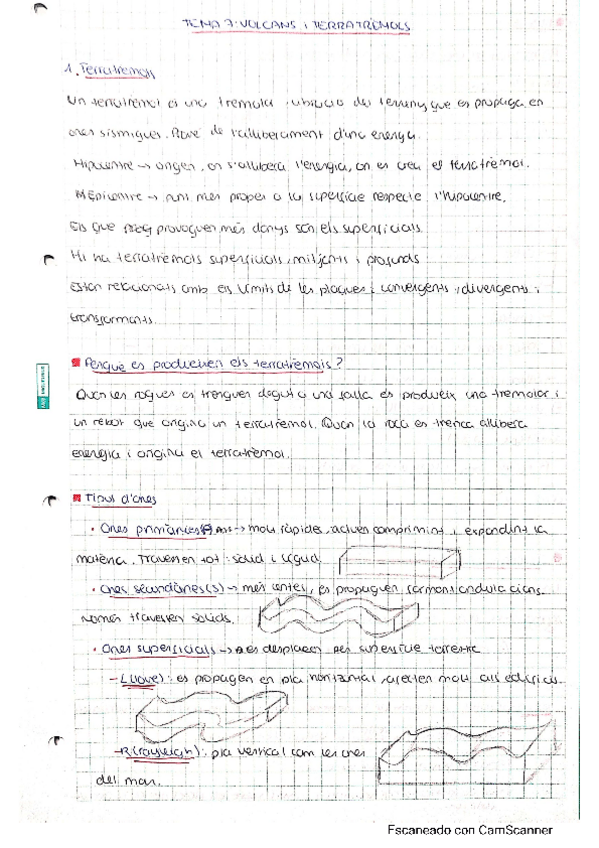 TEMA 7: VOLCANS i TERRATRÈMOLS
1. Terratremols
Un terratremol es una tremola i vibració del terreny que es propaga en
ones sísmiques. Prové de l'alliberament d'una energia.
Hipocentre → origen, on s'allibera l'energia, on es creu el terratremol.
Epicentre → punt més proper a la superfície respecte l'hipocentre.
Els que provoquen més danys són els superficials.
Hi ha terratremols superficials, mitjants i profunds
Estan relacionats amb els límits de les plaques: convergents, divergents i
transformants.
Perque es produeixen els terratrèmols?
Quan les roques es trenquen degut a una falla es produeix una tremolor i
un rebot que origina un terratremol. Quan la roca es trenca allibera
energia i origina el terratremol.
Tipus d'ones
• Ones primàries → molt ràpides, actuen comprimint i expandint la
matèria. Travessen tot: sòlid i líquid
• Ones secundàries(s) → més lentes, es propaguen formant ondulacions.
Només travessen sòlids.
• Ones superficials → es desplacen per superfície terrestre
- L(love): es propagen en pla horitzontal, afecten molt als edificis.
- R(rayleigh): pla vertical com les ones
del mar.
Escaneado con CamScanner